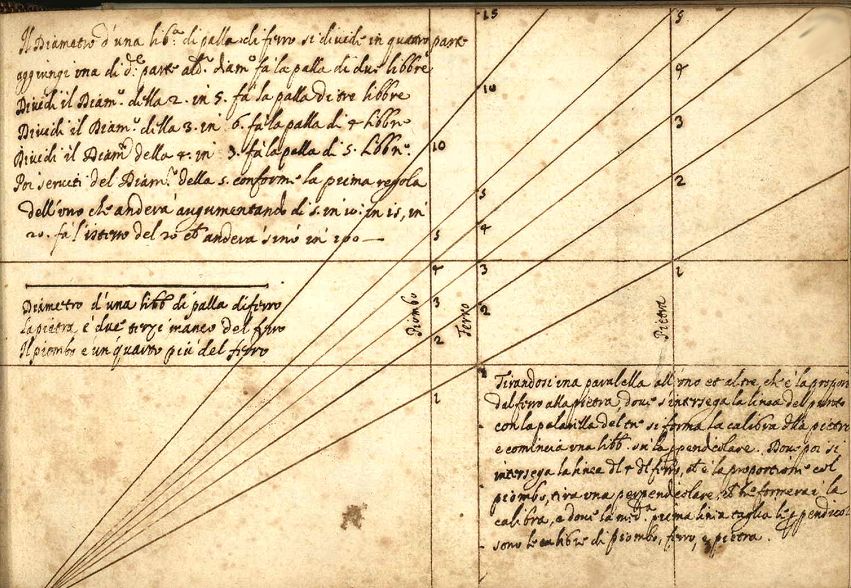 Il Diametro d'una lib.ª di palla di ferro si divide in quattro parte
aggiungi una di d.e parte al d.o diam.o fà la palla di due libbre
Dividi il Diam.o della 2. in 5. fà la palla di tre libbre
Dividi il Diam.o della 3. in 6. fà la palla di 4 libbre
Dividi il Diam.o della 4. in 3. fà la palla di 5. libbre
Poi serviti del Diam.o della 5. conforme la prima regola
dell'uno che anderà augumentando di 5. in 10: in 15, in
20. fà l'istesso del 20 et anderà sinò in 100
Diametro d'una libb di palla di ferro
la pietra è due terzi manco del ferro
Il piombo è un quarto più del ferro
Piombo
Ferro
Pietra
10
5
4
3
2
1
15
10
5
4
3
2
1
5
4
3
2
1
Tirandosi una paralella all'uno et al tre, che è la propor
dal ferro alla pietra, dove s'intersega la linea del punto
con la paralella del tre si forma la calibra della pietre
e comincia una libb su la ppendicolare. Dove poi si
intersega la linea del 4 del ferro, et è la proportione col
piombo, tira una perpendicolare, et formerai la
calibra, e dove la prima linia taglia le ppendico:
sono le calibre di piombo, ferro, e pietra.